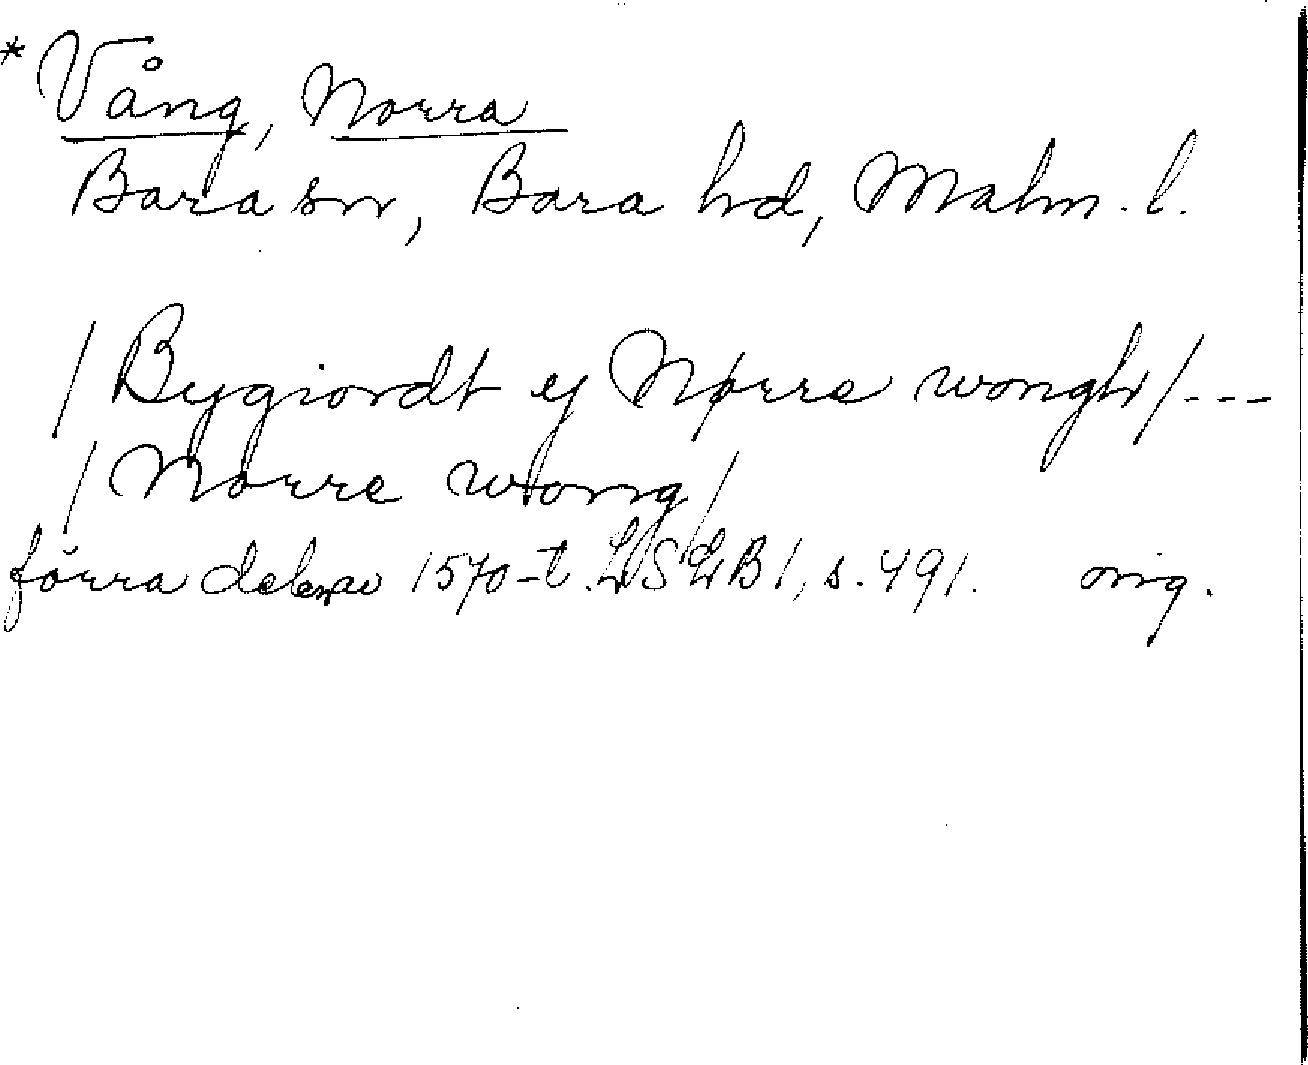 * Vång, Norra
Bara sn, Bara hd, Malm. l.
/ Bygiordt ej Nørre wongh / ---
/ Norre wong /
förra delen av 1570-t. LSLB 1, s. 491. orig.